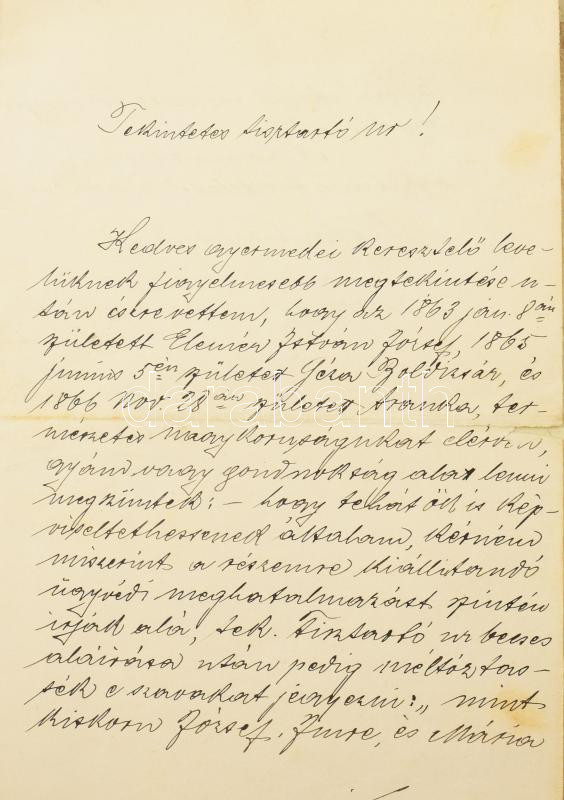 Tekintetes tisztartó úr!
Kedves gyermekei keresztelő leve-
lüknek figyelmesebb megtekintése u-
tán észrevettem, hogy az 1863 jan. 8án
született Elemér István József, 1865
június 5én születet Géza Boldizsár, és
1866 Nov 28án születet Aranka, ter-
mészetes nagykoruságukat elérvén,
gyám vagy gondnokság alatt lenni
megszüntek: – hogy tehát ők is kép-
viseltethessenek általam, kérném
miszerint a részemre kiállitandó
ügyvédi meghatalmazást szintén
irják alá, tek. Tisztartó úr becses
aláirása után pedig méltóztas-
sék e szavakat jegyezni: „mint
kiskoru József, Imre, és Mária
darabanth